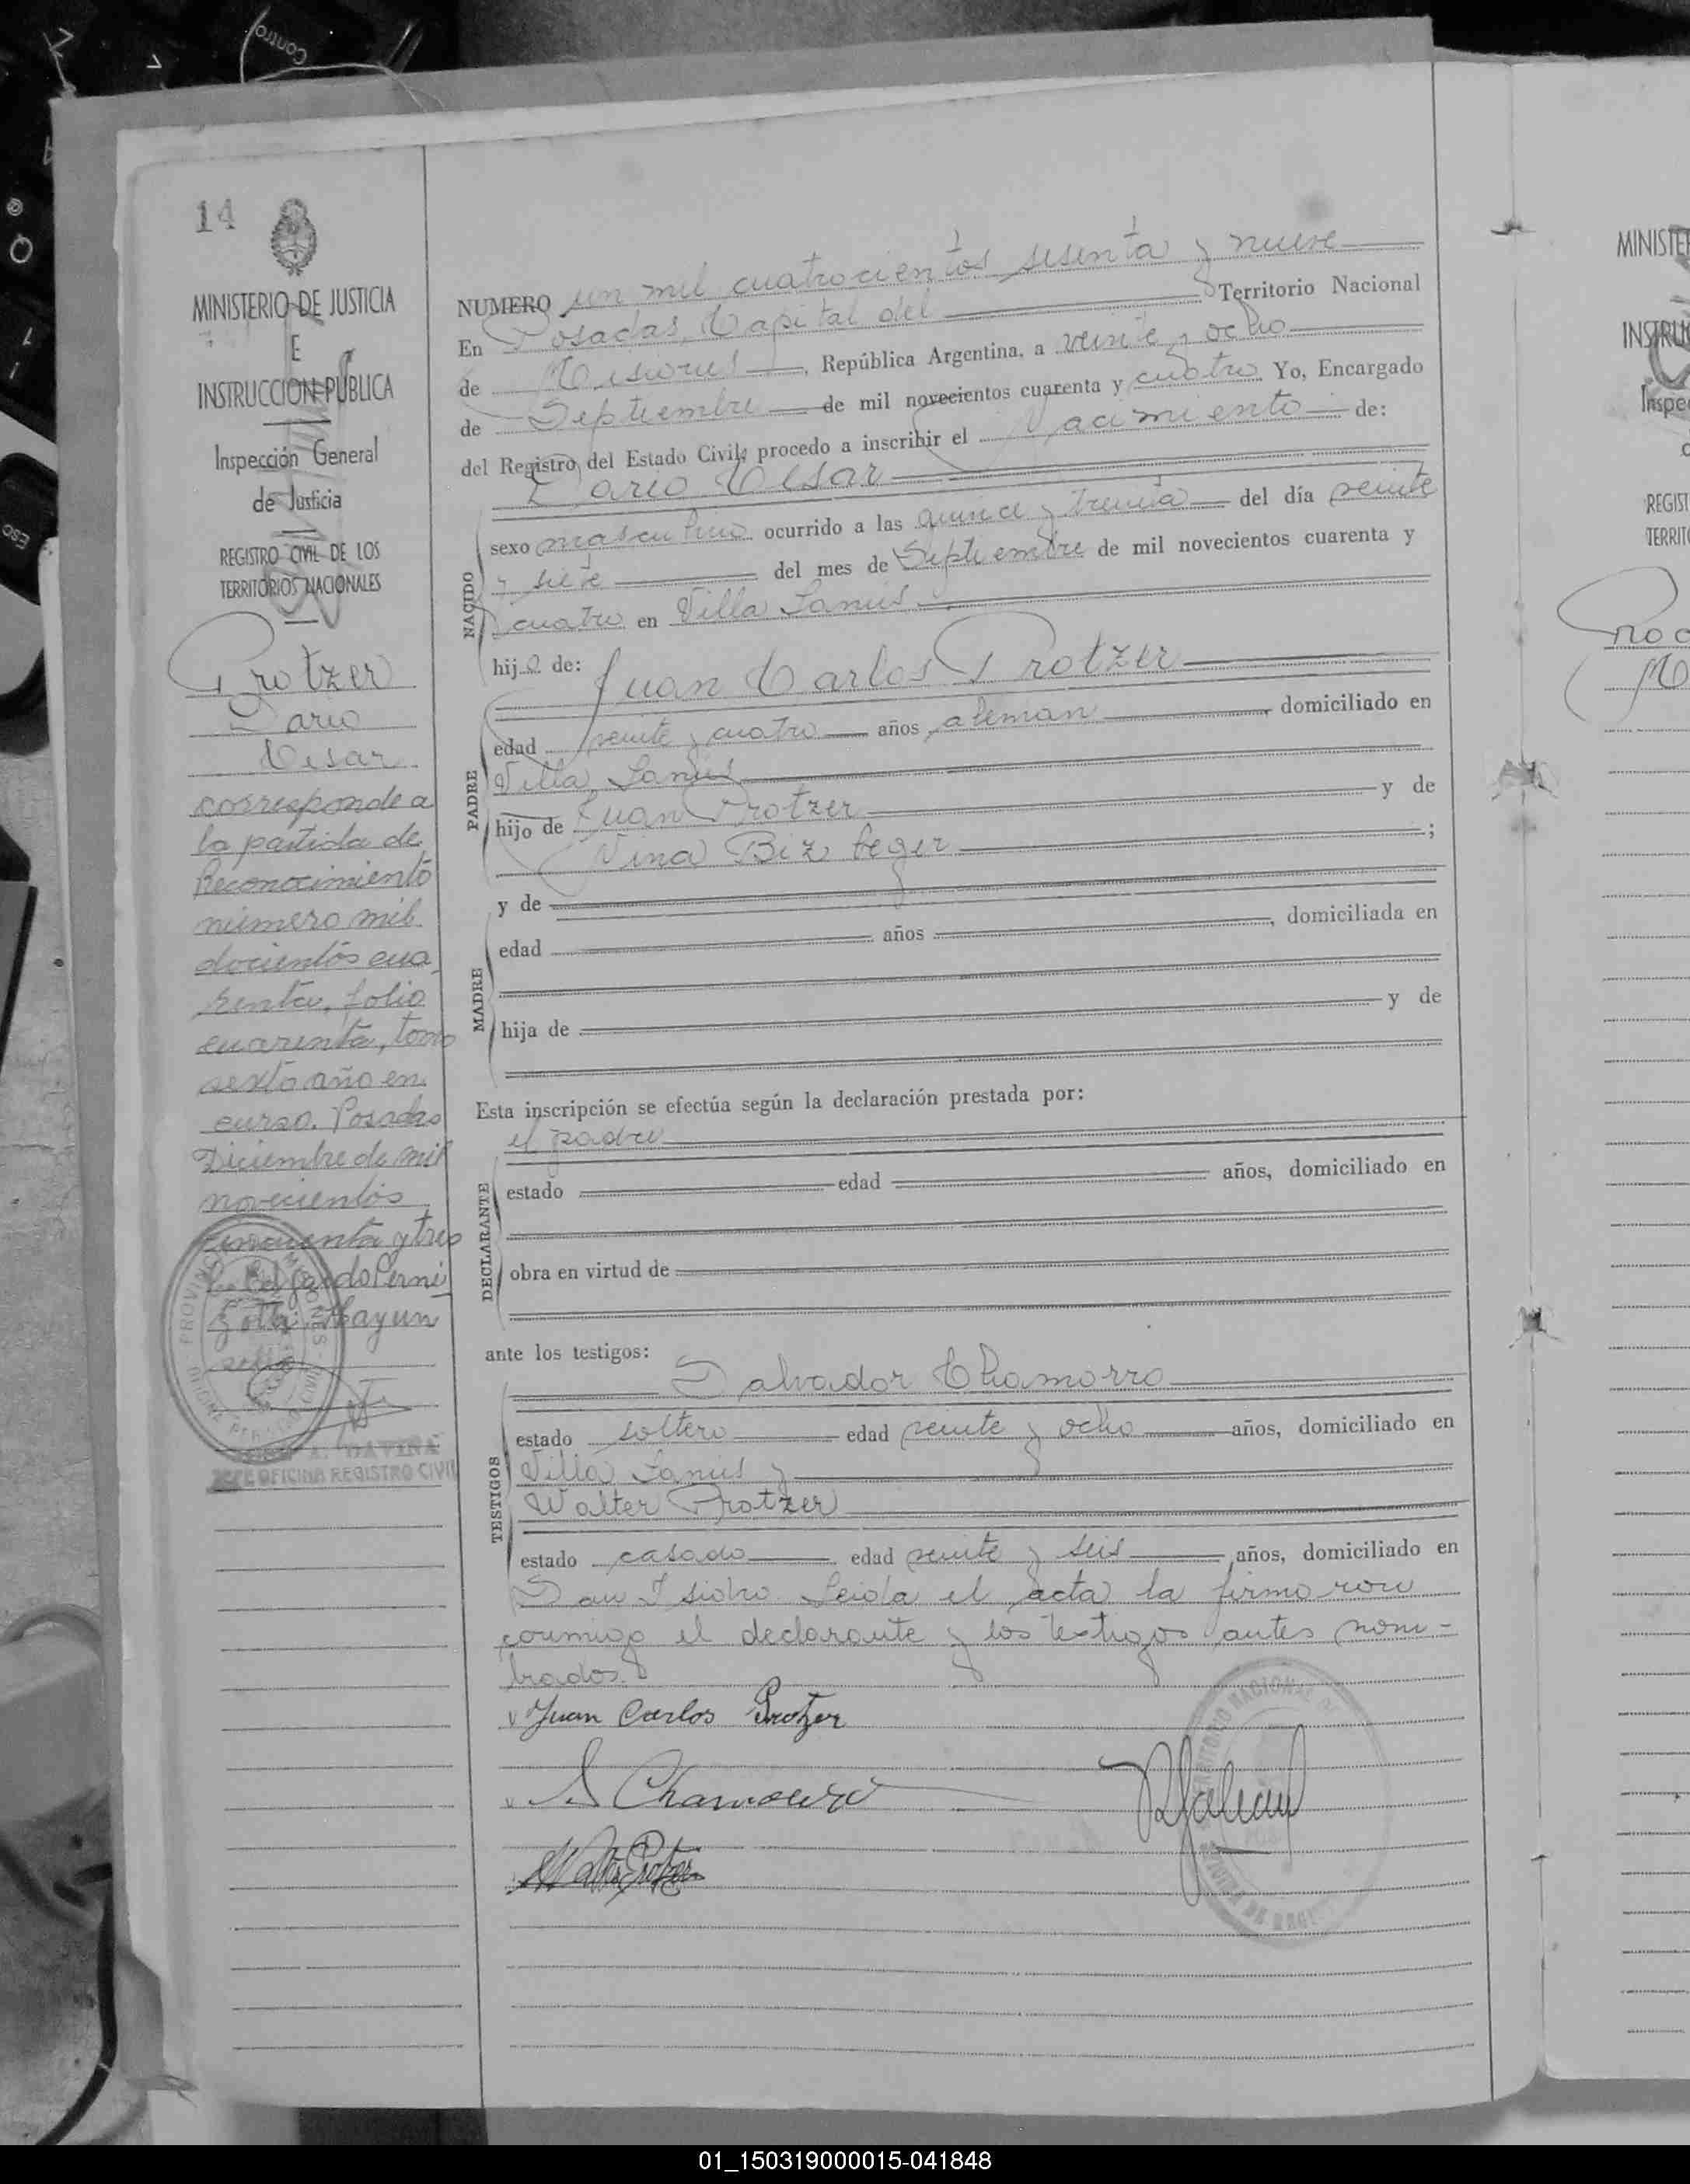 14
MINISTERIO DE JUSTICIA
E
INSTRUCCION PUBLICA
Inspección General
de Justicia
REGISTRO CIVIL DE LOS
TERRITORIOS NACIONALES
Protzer
Dario
Cesar
corresponde a
la partida de
Reconocimiento
número mil
docientos cua
renta, folio
cuarenta, tomo
sexto año en
curso. Posadas
Diciembre de mil
novecientos
cincuenta y tres
Edgardo
OFICINA REGISTRO CIVIL
NUMERO un mil cuatrocientos sesenta y nueve
En Posadas, Capital del Territorio Nacional
de Misiones, República Argentina, a veinte y ocho
de Septiembre de mil novecientos cuarenta y cuatro Yo, Encargado
del Registro del Estado Civil, procedo a inscribir el Nacimiento de:
Dario Cesar
NACIDO
sexo masculino ocurrido a las quince y treinta del día veinte
y siete del mes de Septiembre de mil novecientos cuarenta y
cuatro en Villa Lanús
hijo de: Juan Carlos Protzer
PADRE
edad veinte y cuatro años, aleman, domiciliado en
Villa Lanús
hijo de Juan Protzer y de
Nina ;
y de
MADRE
edad años , domiciliada en
hija de y de
Esta inscripción se efectúa según la declaración prestada por:
el padre
DECLARANTE
estado edad años, domiciliado en
obra en virtud de
ante los testigos:
Salvador Chamorro
TESTIGOS
estado soltero edad veinte y ocho años, domiciliado en
Villa Lanús y
Walter Protzer
estado casado edad veinte y seis años, domiciliado en
San Isidro Leida el acta la firmaron
conmigo el declarante y los testigos antes nom-
brados.
Juan Carlos Protzer
S Chamorro
Walter Protzer
MINISTE
INSTRUC
Inspec
REGIST
TERRITO
Control
Esc
01_150319000015-041848